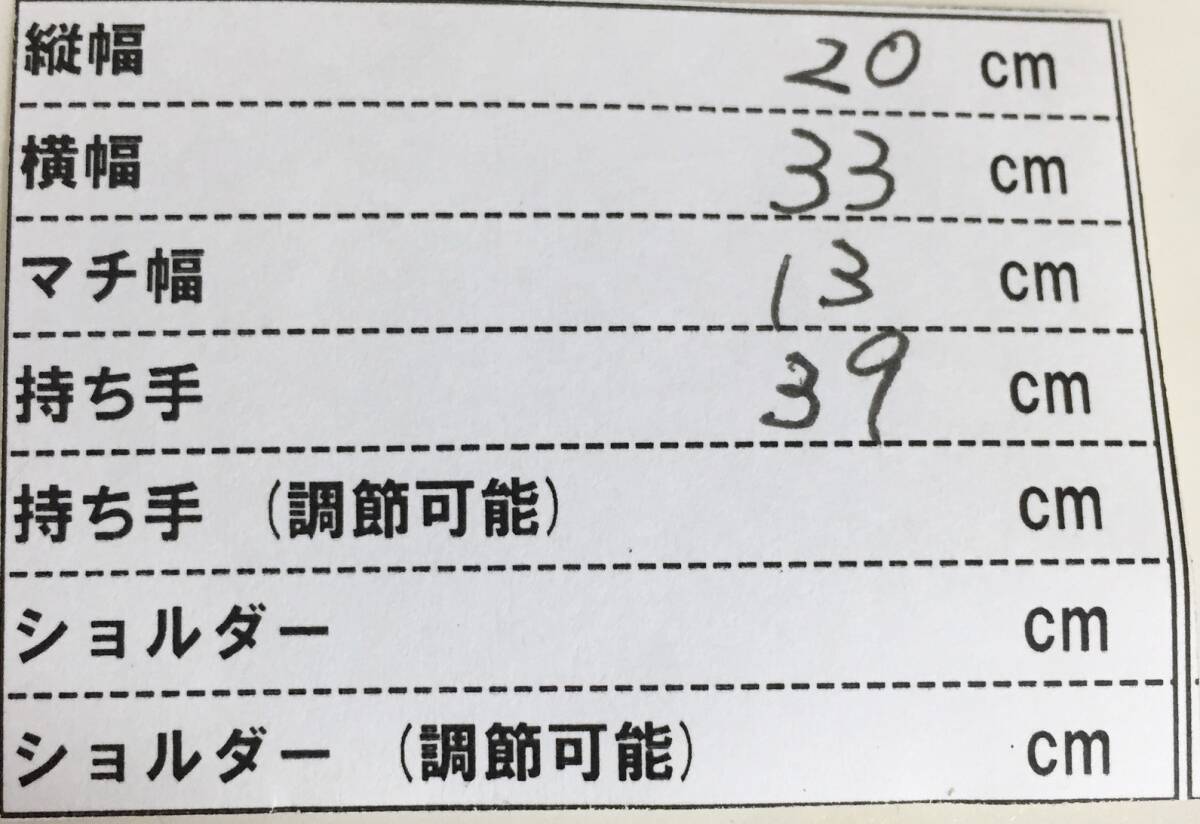 縦幅 20 cm
横幅 33 cm
マチ幅 13 cm
持ち手 39 cm
持ち手 (調節可能) cm
ショルダー cm
ショルダー (調節可能) cm